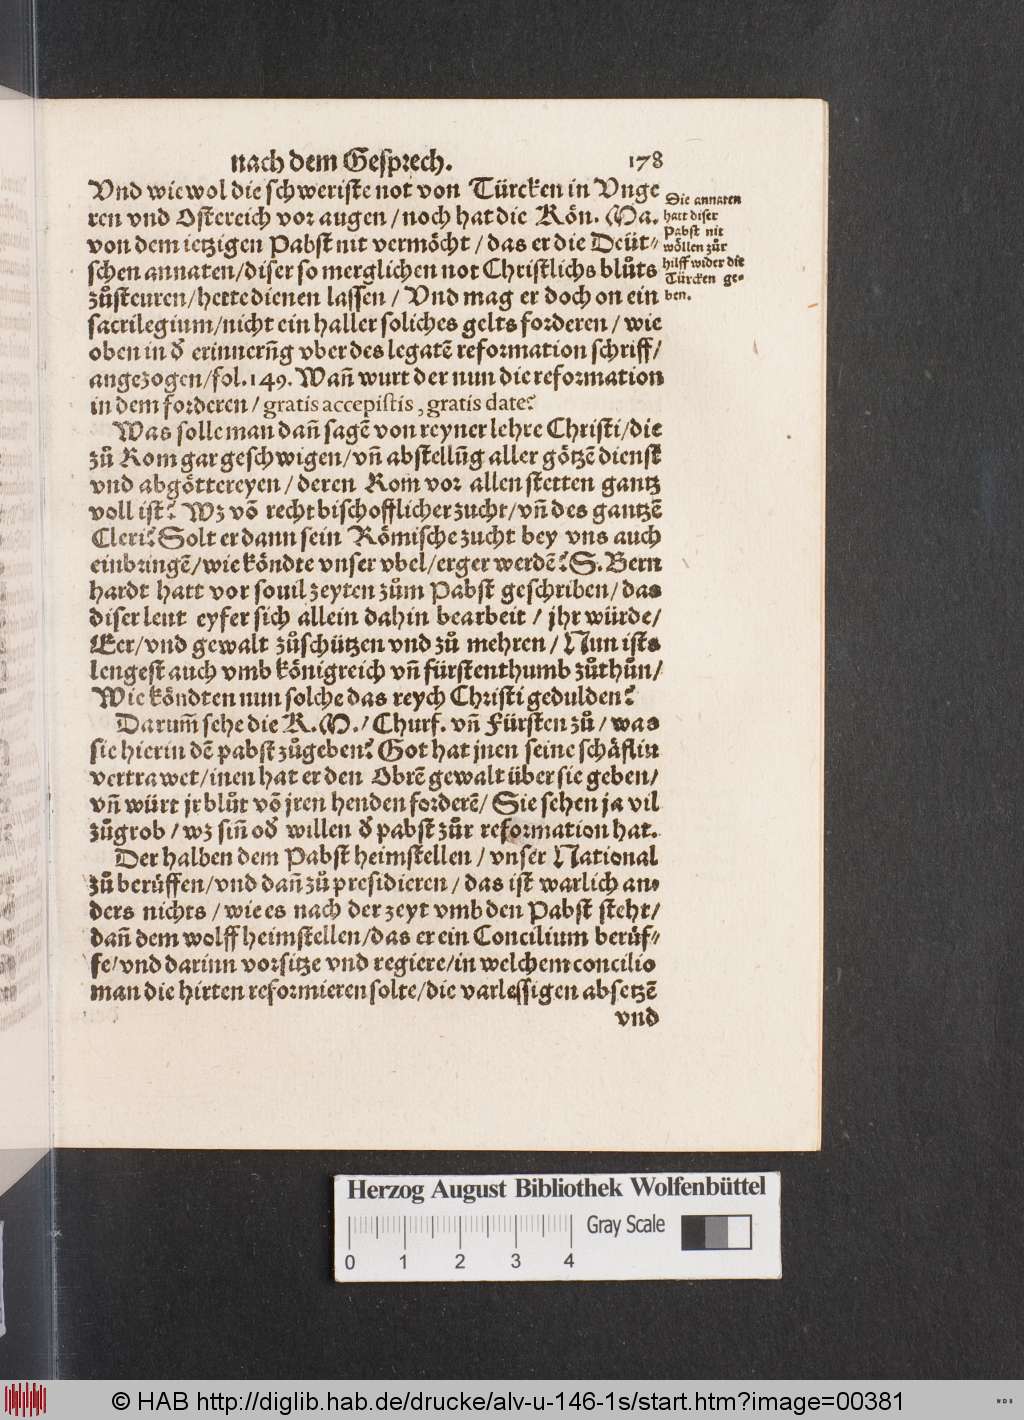 nach dem Gesprech. 178
Vnd wiewol die schweriste not von Türcken in Vnge
ren vnd Ostereich vor augen / noch hat die Kön. Ma.
von dem ietzigen Pabst nit vermöcht / das er die Deüt⸗
schen annaten / diser so merglichen not Christlichs blůts
zůsteuren / hette dienen lassen / Vnd mag er doch on ein
sacrilegium / nicht ein haller soliches gelts forderen / wie
oben in d̓ erinnerñg vber des legatē reformation schriff /
angezogen / fol. 149. Wañ wurt der nun die reformation
in dem forderen / gratis accepistis, gratis date?
Was solle man dañ sagē von reyner lehre Christi / die
zů Rom gar geschwigen / vñ abstellũg aller götzē dienst
vnd abgöttereyen / deren Rom vor allen stetten gantz
voll ist? Wz võ recht bischofflicher zucht / vñ des gantzē
Cleri? Solt er dann sein Römische zucht bey vns auch
einbringē / wie köndte vnser vbel / erger werdē? S. Bern
hardt hatt vor souil zeyten zům Pabst geschriben / das
diser leut eyfer sich allein dahin bearbeit / jhr würde /
Eer / vnd gewalt zůschützen vnd zů mehren / Nun ists
lengest auch vmb königreich vñ fürstenthumb zůthůn /
Wie köndten nun solche das reych Christi gedulden?
Darum̃ sehe die K. M. / Churf. vñ Fürsten zů / was
sie hierin dē pabst zůgeben? Got hat jnen seine schäflin
vertrawet / inen hat er den Obrē gewalt über sie geben /
vñ würt jr blůt võ jren henden forderē / Sie sehen ja vil
zůgrob / wz siñ od̓ willen d̓ pabst zůr reformation hat.
Der halben dem Pabst heimstellen / vnser National
zů berüffen / vnd dañ zů presidieren / das ist warlich an⸗
ders nichts / wie es nach der zeyt vmb den Pabst steht /
dañ dem wolff heimstellen / das er ein Concilium berüf⸗
fe / vnd darinn vorsitze vnd regiere / in welchem concilio
man die hirten reformieren solte / die varlessigen absetzē
vnd
Die annaten
hatt diser
Pabst nit
wöllen zůr
hilff wider die
Türcken ge⸗
ben.
Herzog August Bibliothek Wolfenbüttel
Gray Scale
0 1 2 3 4
© HAB http://diglib.hab.de/drucke/alv-u-146-1s/start.htm?image=00381